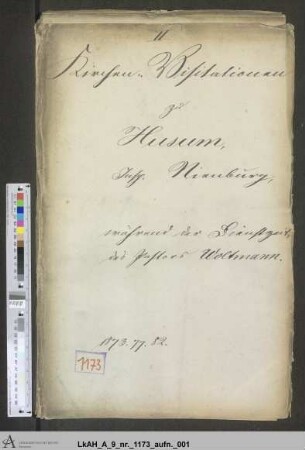 II
Kirchen-Visitationen
zu
Husum,
Insp. Nienburg,
während der Dienstzeit
des Pastors Woltmann.
1873. 77. 82.
1173
LkAH_A_9_nr._1173_aufn._001